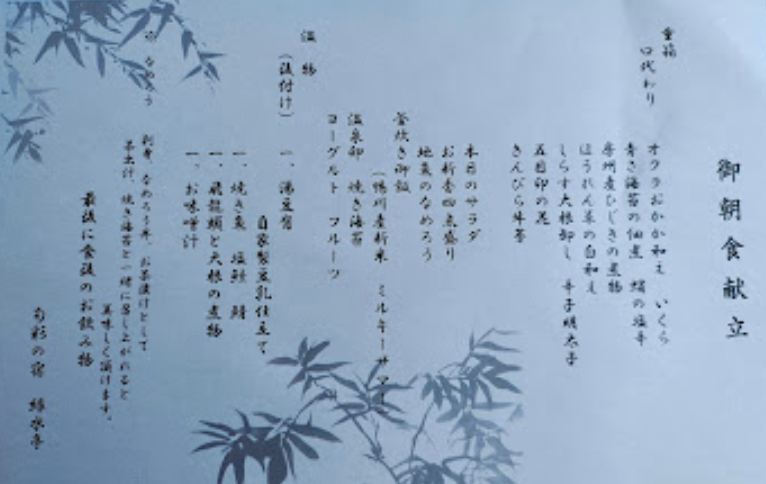 御朝食献立
重箱
口代わり
オクラおかか和え　いくら
青さ海苔の佃煮　蛸の塩辛
房州産ひじきの煮物
ほうれん草の白和え
しらす大根卸し　辛子明太子
五目卯の花
きんぴら牛蒡
本日のサラダ
お新香四点盛り
地魚のなめろう
釜炊き御飯
（鴨川産新米　ミルキーサマー
温泉卵　焼き海苔
ヨーグルト　フルーツ
温物
（法付け）
一、湯豆腐
自家製豆乳仕立て
一、焼き魚　塩鮭　鯖
一、飛龍頭と大根の煮物
一、お味噌汁
なめろう
刺身、なめろう丼、お茶漬けとして
茶出汁、焼き海苔と一緒に召し上がれると
美味しく頂けます。
最後に食後のお飲み物
の宿　緑水亭